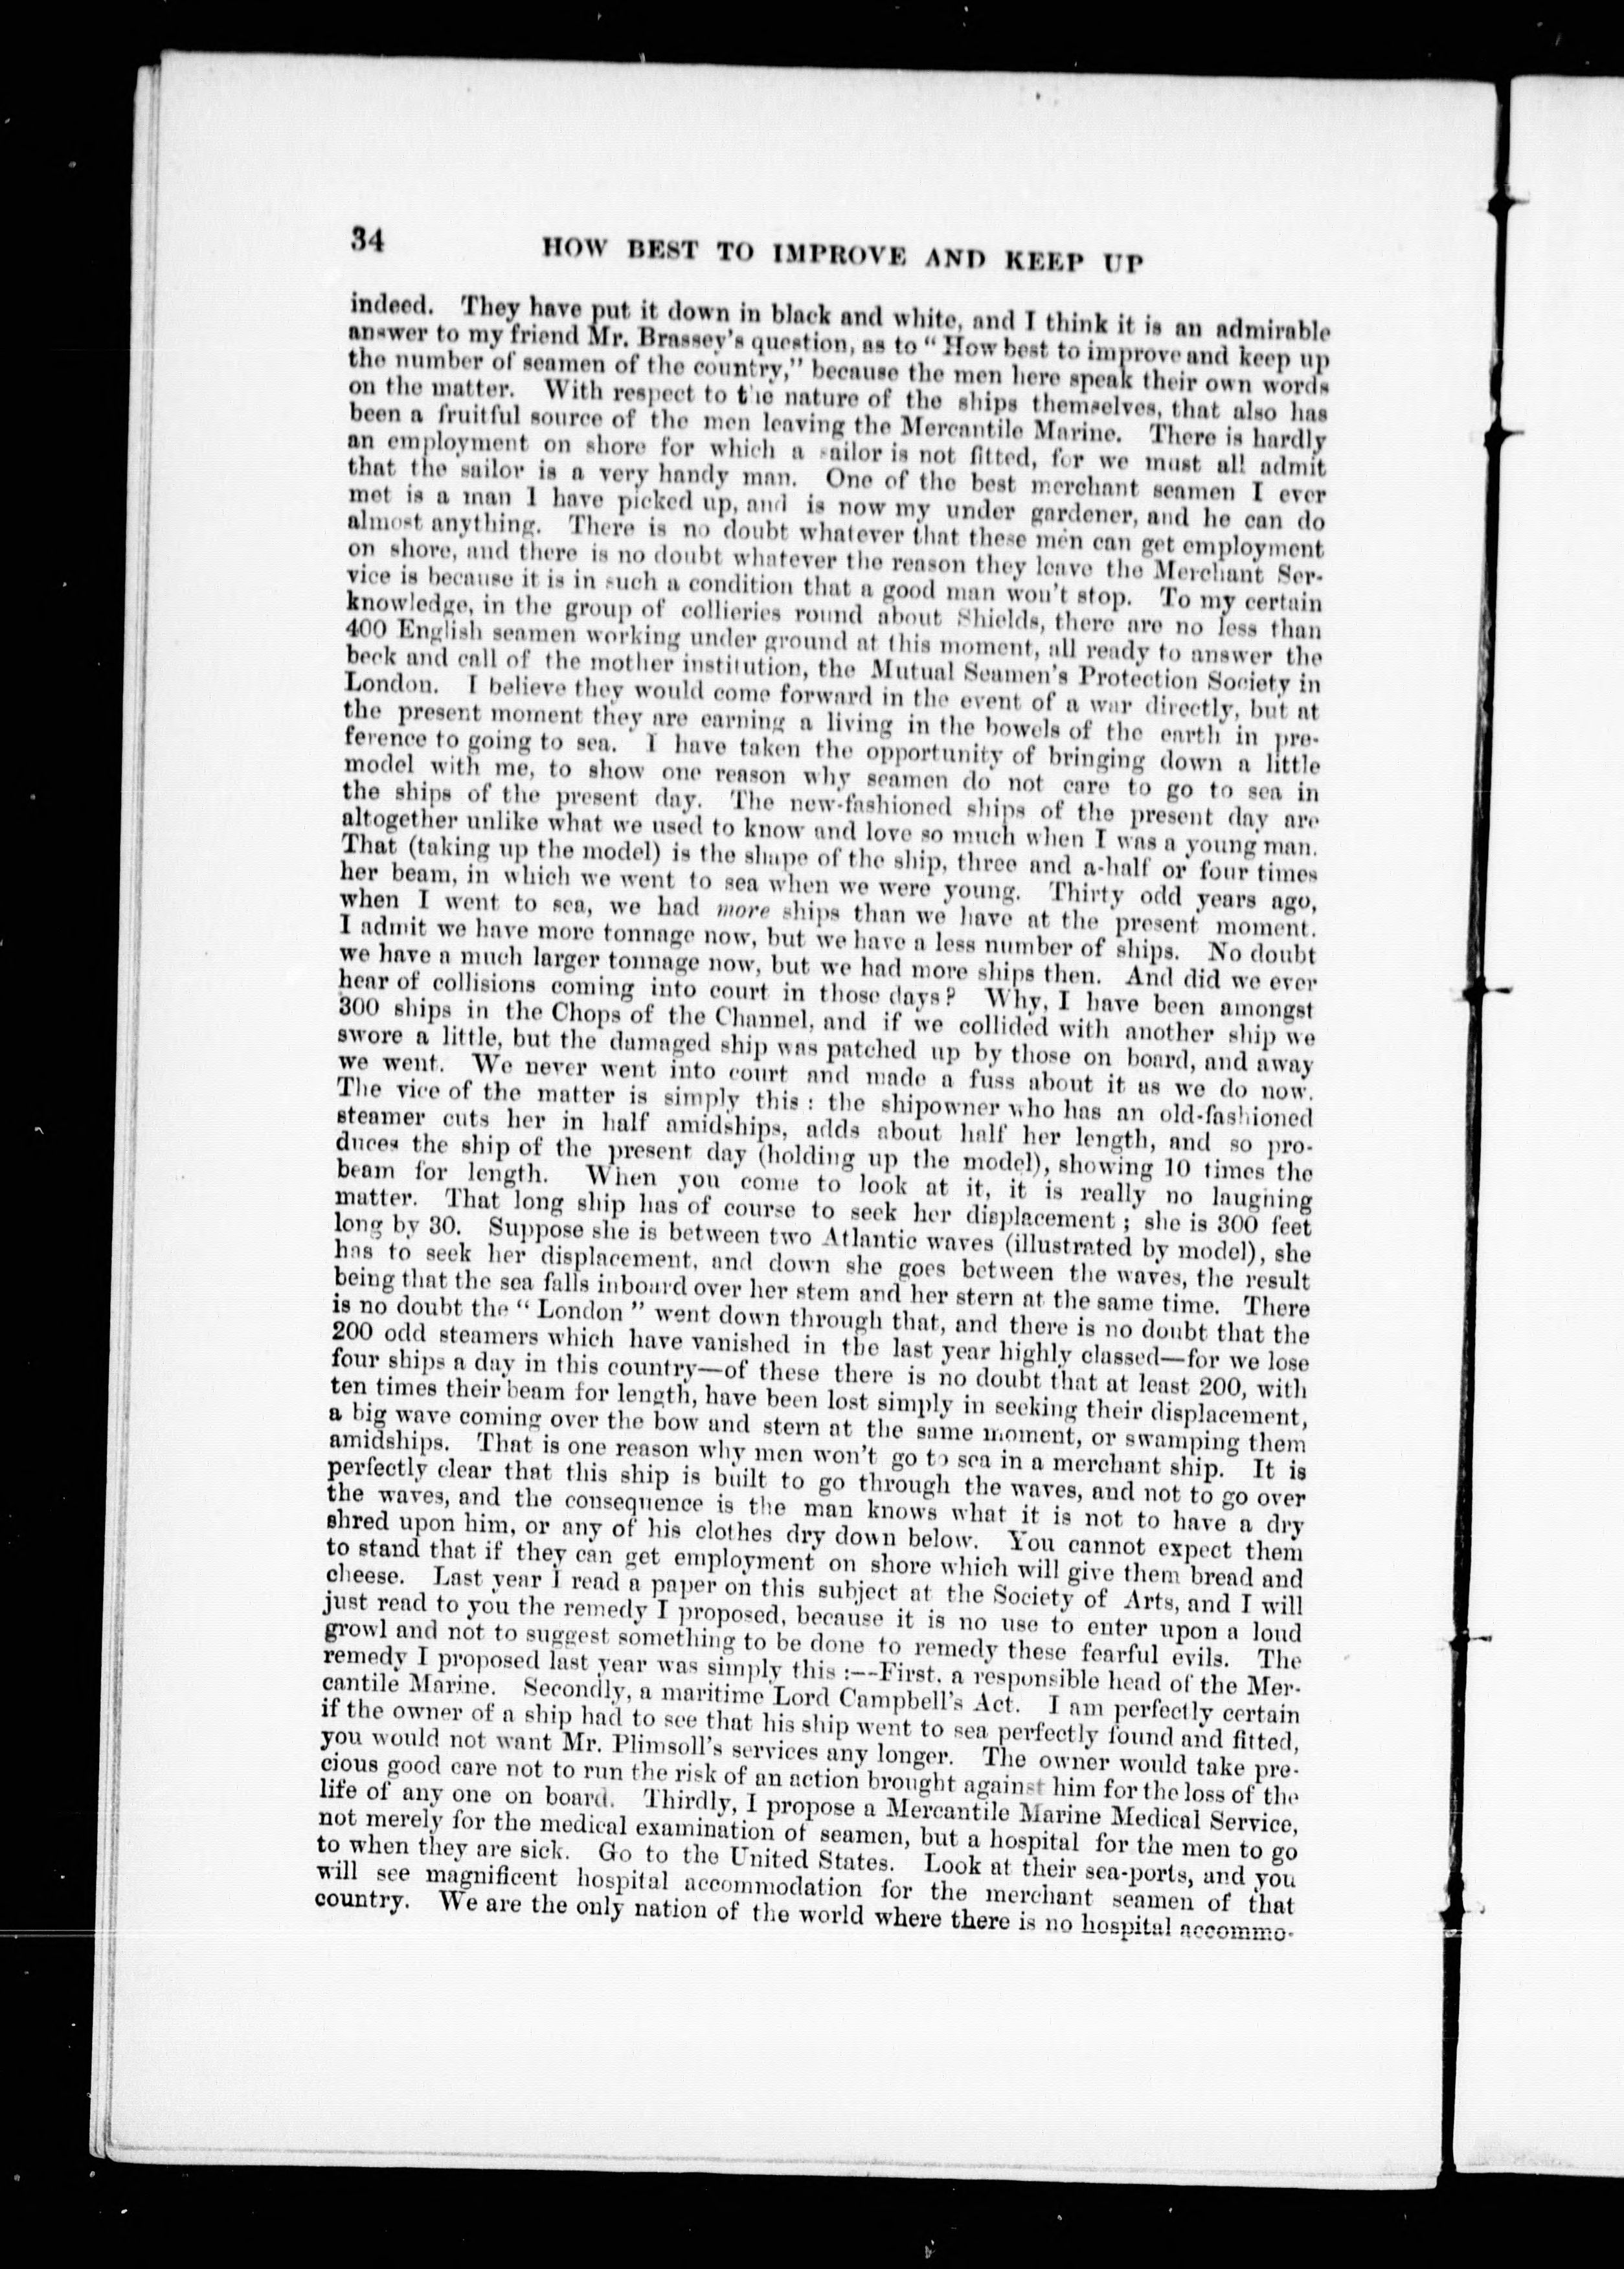 34
HOW BEST TO IMPROVE AND KEEP UP
indeed. They have put it down in black and white, and I think it is an admirable
answer to my friend Mr. Brassey's question, as to "How best to improve and keep up
the number of seamen of the country," because the men here speak their own words
on the matter. With respect to the nature of the ships themselves, that also has
been a fruitful source of the men leaving the Mercantile Marine. There is hardly
an employment on shore for which a sailor is not fitted, for we must all admit
that the sailor is a very handy man. One of the best merchant seamen I ever
met is a man I have picked up, and is now my under gardener, and he can do
almost anything. There is no doubt whatever that these men can get employment
on shore, and there is no doubt whatever the reason they leave the Merchant Ser-
vice is because it is in such a condition that a good man won't stop. To my certain
knowledge, in the group of collieries round about Shields, there are no less than
400 English seamen working under ground at this moment, all ready to answer the
beck and call of the mother institution, the Mutual Seamen's Protection Society in
London. I believe they would come forward in the event of a war directly, but at
the present moment they are earning a living in the bowels of the earth in pre-
ference to going to sea. I have taken the opportunity of bringing down a little
model with me, to show one reason why seamen do not care to go to sea in
the ships of the present day. The new-fashioned ships of the present day are
altogether unlike what we used to know and love so much when I was a young man.
That (taking up the model) is the shape of the ship, three and a-half or four times
her beam, in which we went to sea when we were young. Thirty odd years ago,
when I went to sea, we had more ships than we have at the present moment.
I admit we have more tonnage now, but we have a less number of ships. No doubt
we have a much larger tonnage now, but we had more ships then. And did we ever
hear of collisions coming into court in those days? Why, I have been amongst
300 ships in the Chops of the Channel, and if we collided with another ship we
swore a little, but the damaged ship was patched up by those on board, and away
we went. We never went into court and made a fuss about it as we do now.
The vice of the matter is simply this: the shipowner who has an old-fashioned
steamer cuts her in half amidships, adds about half her length, and so pro-
duces the ship of the present day (holding up the model), showing 10 times the
beam for length. When you come to look at it, it is really no laughing
matter. That long ship has of course to seek her displacement; she is 300 feet
long by 30. Suppose she is between two Atlantic waves (illustrated by model), she
has to seek her displacement, and down she goes between the waves, the result
being that the sea falls inboard over her stem and her stern at the same time. There
is no doubt the "London" went down through that, and there is no doubt that the
200 odd steamers which have vanished in the last year highly classed—for we lose
four ships a day in this country—of these there is no doubt that at least 200, with
ten times their beam for length, have been lost simply in seeking their displacement,
a big wave coming over the bow and stern at the same moment, or swamping them
amidships. That is one reason why men won't go to sea in a merchant ship. It is
perfectly clear that this ship is built to go through the waves, and not to go over
the waves, and the consequence is the man knows what it is not to have a dry
shred upon him, or any of his clothes dry down below. You cannot expect them
to stand that if they can get employment on shore which will give them bread and
cheese. Last year I read a paper on this subject at the Society of Arts, and I will
just read to you the remedy I proposed, because it is no use to enter upon a loud
growl and not to suggest something to be done to remedy these fearful evils. The
remedy I proposed last year was simply this:--First, a responsible head of the Mer-
cantile Marine. Secondly, a maritime Lord Campbell's Act. I am perfectly certain
if the owner of a ship had to see that his ship went to sea perfectly found and fitted,
you would not want Mr. Plimsoll's services any longer. The owner would take pre-
cious good care not to run the risk of an action brought against him for the loss of the
life of any one on board. Thirdly, I propose a Mercantile Marine Medical Service,
not merely for the medical examination of seamen, but a hospital for the men to go
to when they are sick. Go to the United States. Look at their sea-ports, and you
will see magnificent hospital accommodation for the merchant seamen of that
country. We are the only nation of the world where there is no hospital accommo-